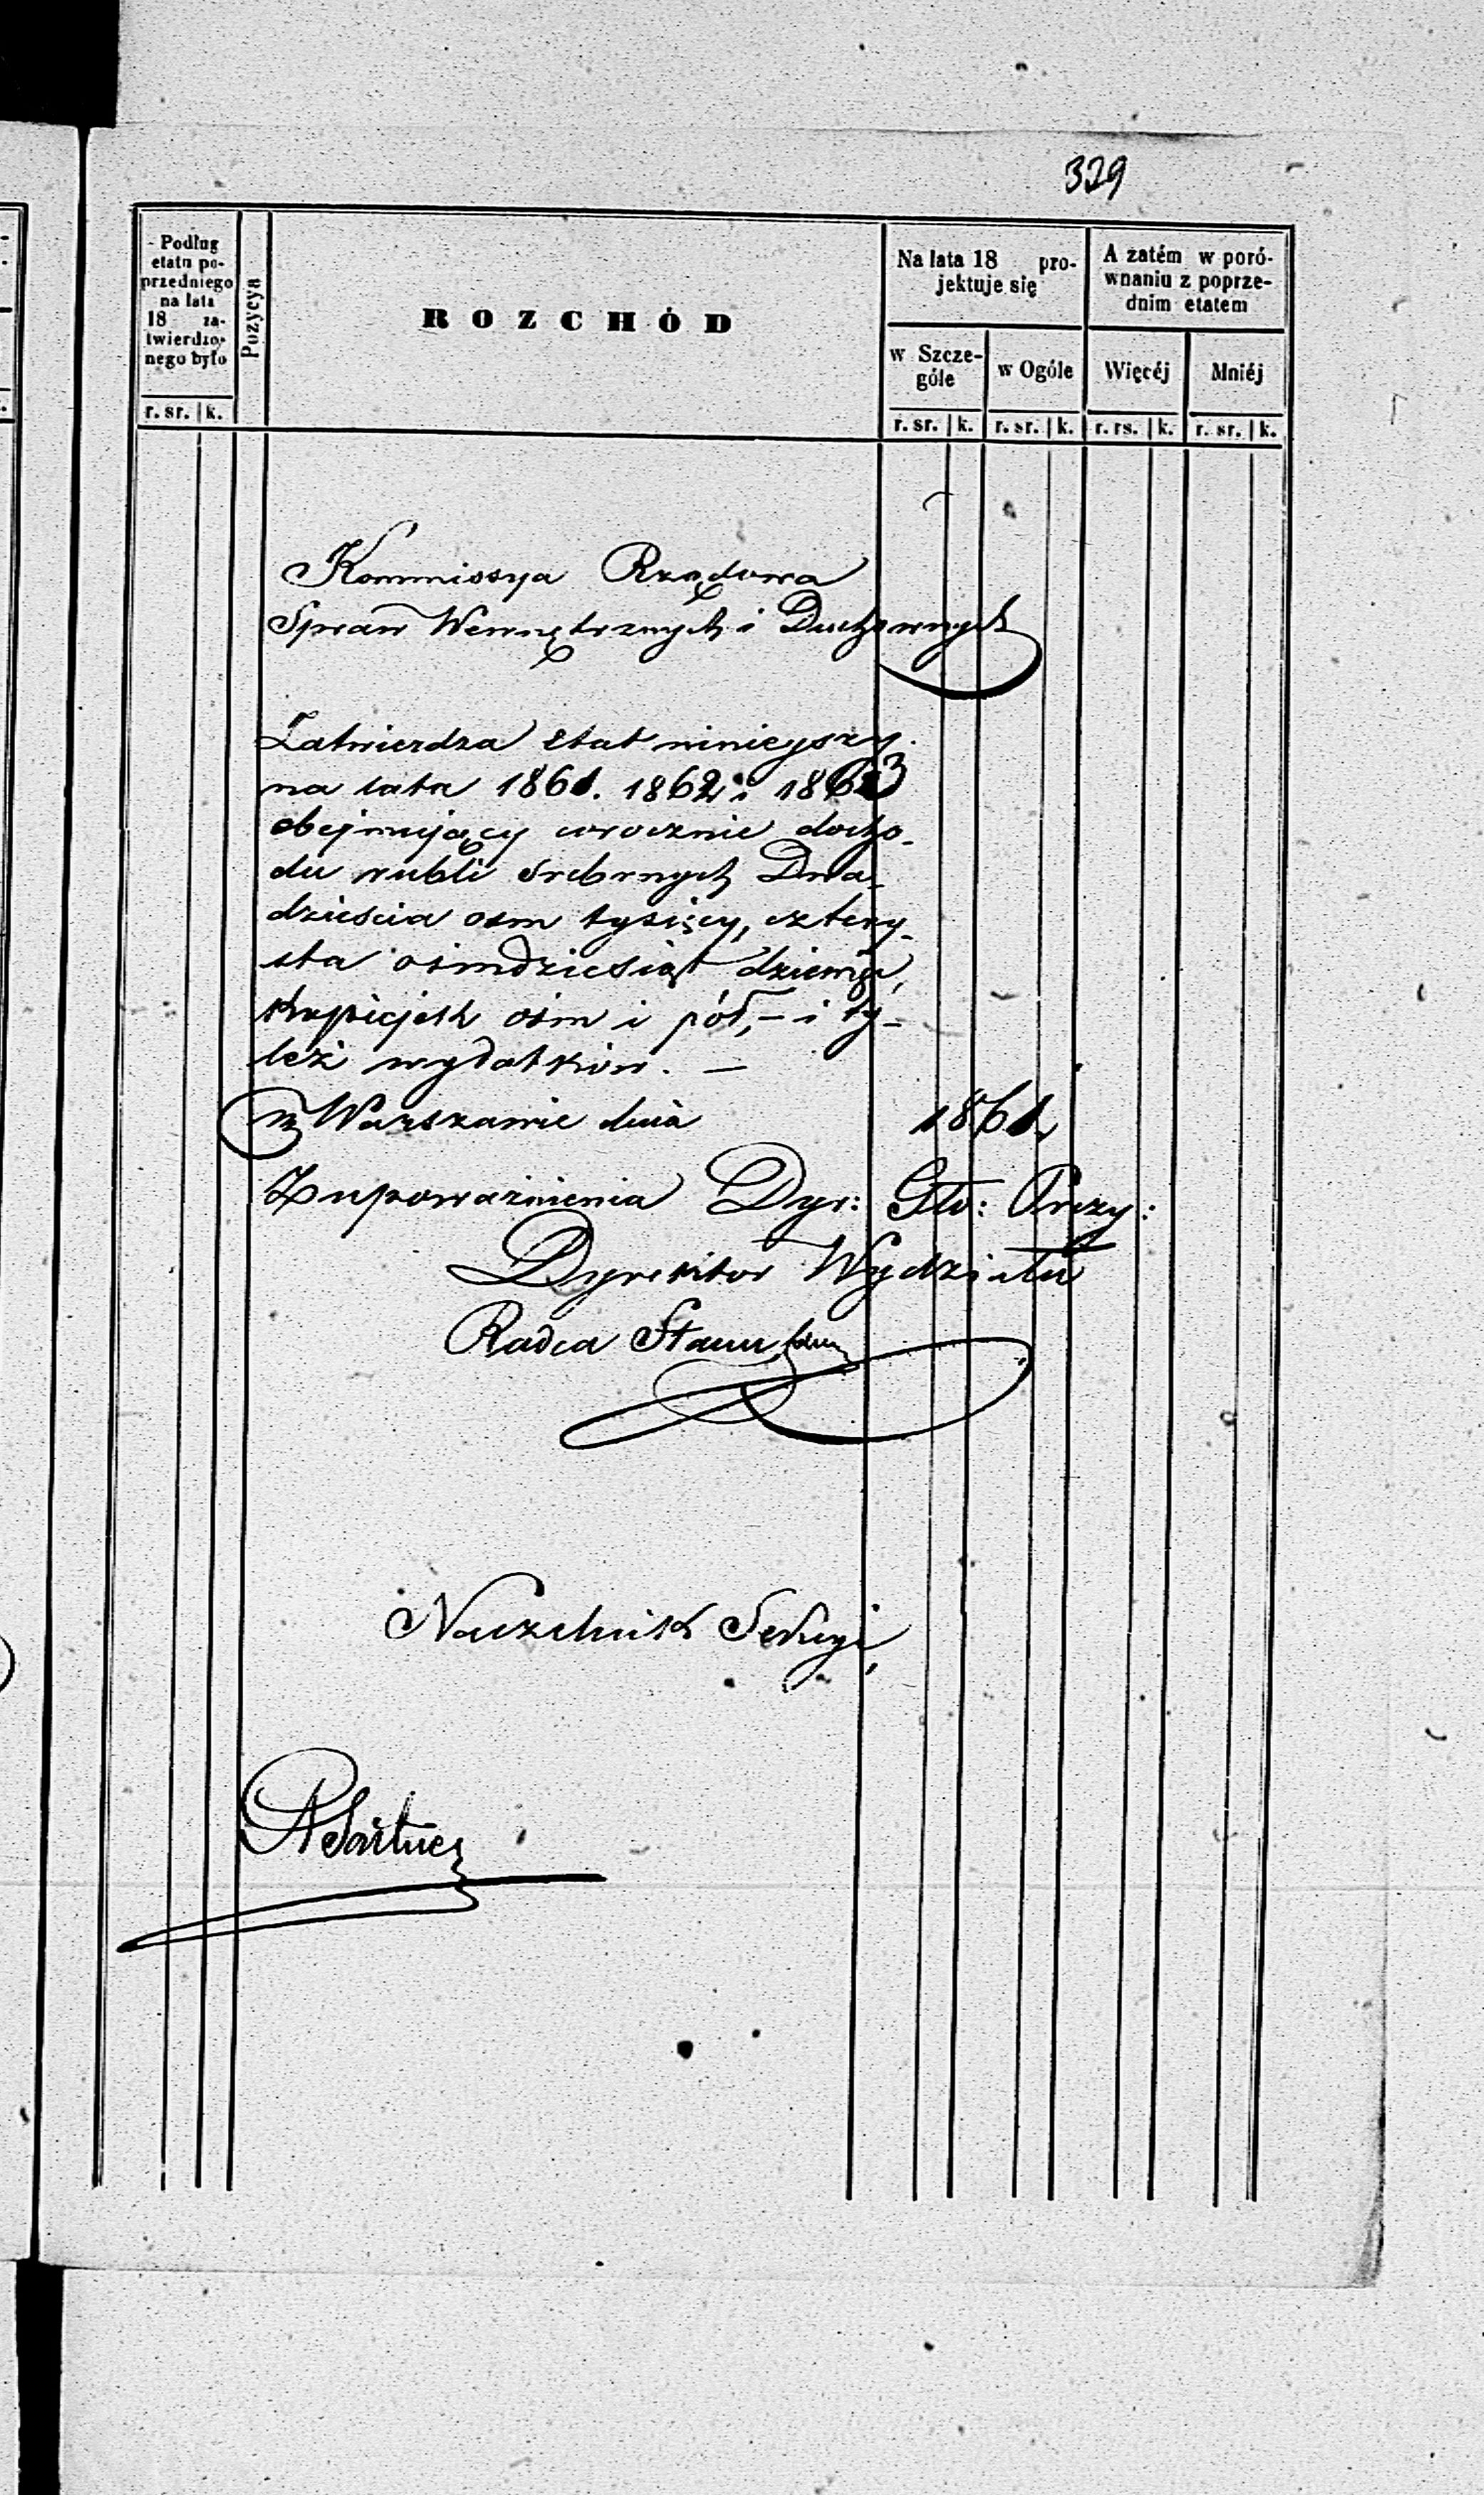 329
- Podług
etatu po-
przedniego
na lata
18 za-
twierdzo-
nego było
r. sr. | k.
Pozycya
ROZCHÓD
Na lata 18 pro-
jektuje się
w Szcze-
góle
w Ogóle
r. sr. | k. r. sr. | k.
A zatém w poró-
wnaniu z poprze-
dnim etatem
Więcéj
Mniéj
r. rs. | k. r. sr. | k.
Kommissya Rządowa
Spraw Wewnętrznych i Duchownych
Zatwierdza etat niniejszy
na lata 1861. 1862 i 1863
obejmujący corocznie docho-
du rubli srebrnych Dwa-
dzieścia ośm tysięcy, cztery-
sta ośmdziesiąt dziewięć,
kopiejek ośm i pół, – i ty-
leż wydatków. –
w Warszawie dnia 1861
Z upoważnienia Dyr: Głó: Prezy:
Dyrektor Wydziału
Radca Stanu
Naczelnik Sekcyi,